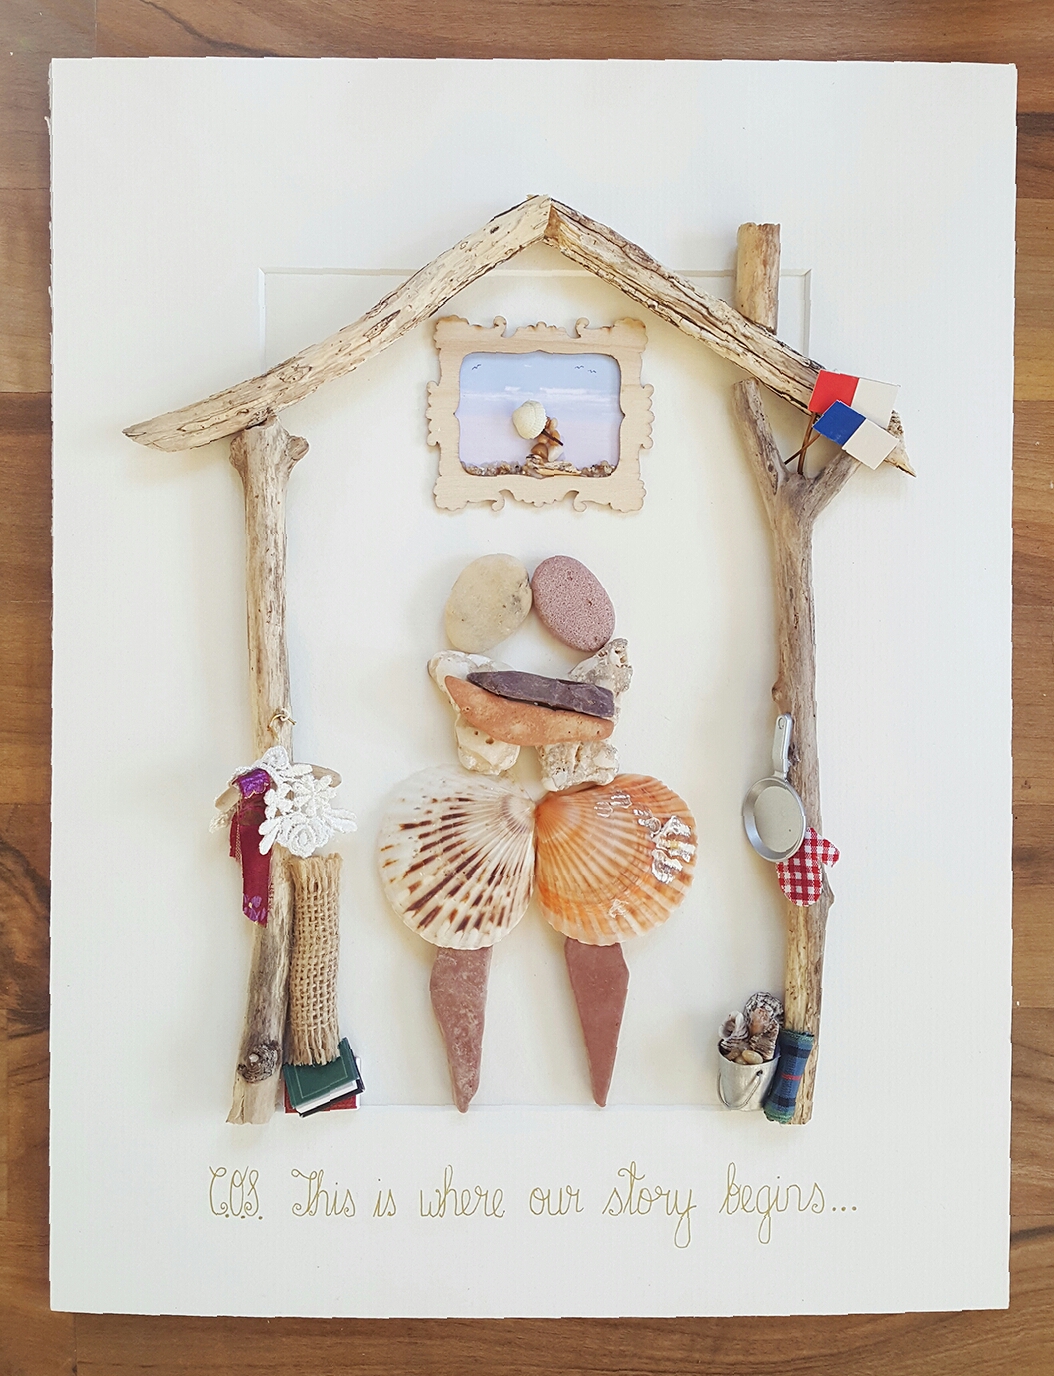 C.O.S. This is where our story begins...